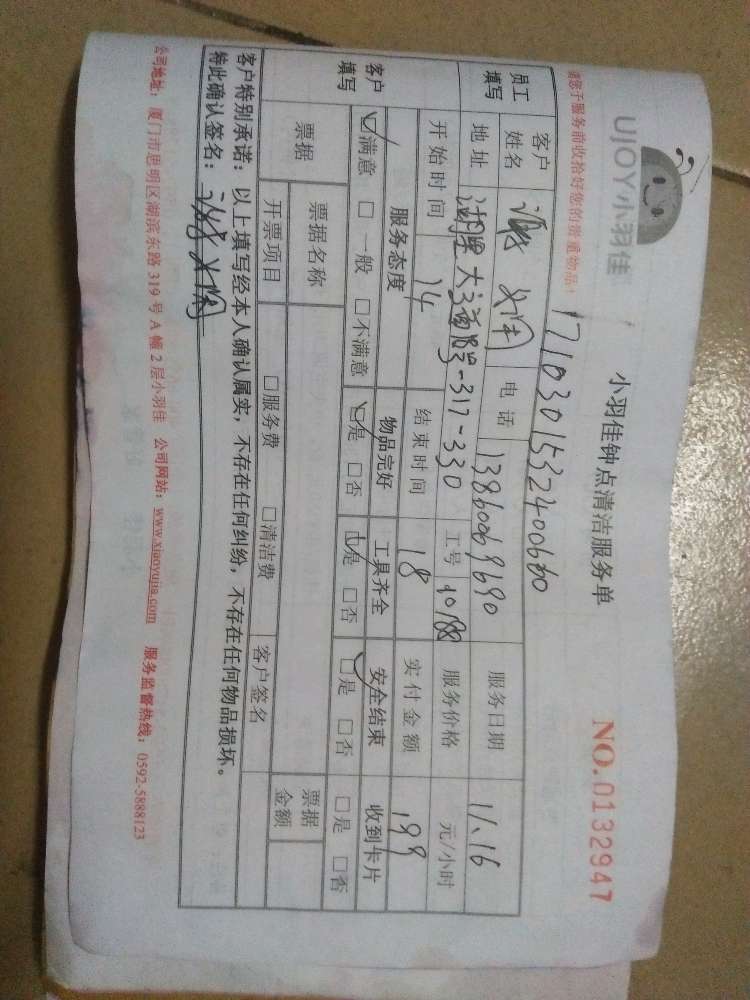 UJOY小羽佳
小羽佳钟点清洁服务单
NO.0132947
请您于服务前收拾好您的贵重物品！
171030153240066
员工填写 客户姓名 电话 服务日期 11.16
地址 湖里大道 317-330 工号 服务价格 元/小时
开始时间 14 结束时间 18 实付金额 199
客户填写 服务态度 物品完好 工具齐全 安全结束 收到卡片
☑满意 □一般 □不满意 ☑是 □否 ☑是 □否 ☑是 □否 □是 □否
票据 票据名称 票据金额
开票项目 □服务费 □清洁费 客户签名
客户特别承诺：以上填写经本人确认属实，不存在任何纠纷，不存在任何物品损坏。
特此确认签名：
公司地址：厦门市思明区湖滨东路319号A幢2层小羽佳 公司网站：www.xiaoyujia.com 服务监督热线：0592-5888123